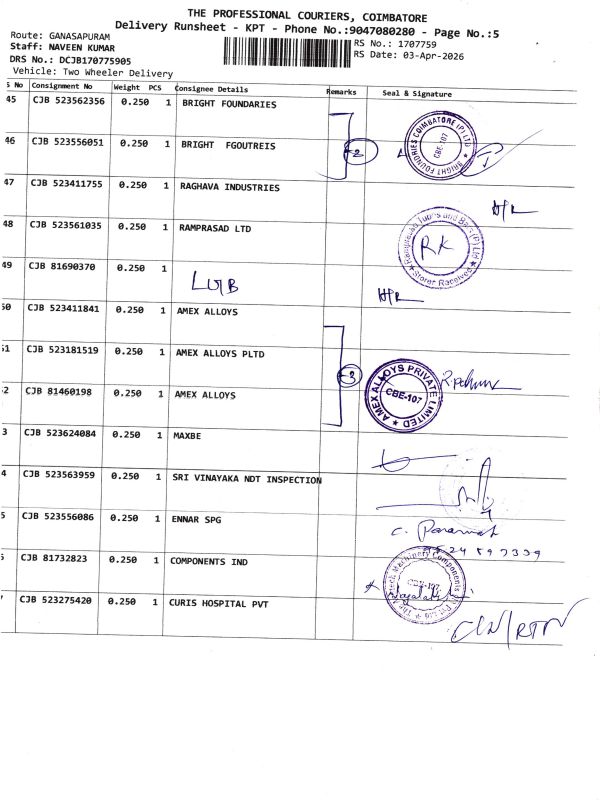 THE PROFESSIONAL COURIERS, COIMBATORE
Delivery Runsheet - KPT - Phone No.:9047080280 - Page No.:5
Route: GANASAPURAM
Staff: NAVEEN KUMAR
DRS No.: DCJB170775905
Vehicle: Two Wheeler Delivery
RS No.: 1707759
RS Date: 03-Apr-2026
S No Consignment No Weight PCS Consignee Details Remarks Seal & Signature
45 CJB 523562356 0.250 1 BRIGHT FOUNDARIES
46 CJB 523556051 0.250 1 BRIGHT FGOUTREIS 2
BRIGHT FOUNDRIES COIMBATORE (P) LTD CBE-107
47 CJB 523411755 0.250 1 RAGHAVA INDUSTRIES H/R
48 CJB 523561035 0.250 1 RAMPRASAD LTD
Ramprasad Tubes and Bars (P) Ltd Stores Received RK
49 CJB 81690370 0.250 1 H/R
50 CJB 523411841 0.250 1 AMEX ALLOYS
51 CJB 523181519 0.250 1 AMEX ALLOYS PLTD 3
AMEX ALLOYS PRIVATE LIMITED CBE-107
2 CJB 81460198 0.250 1 AMEX ALLOYS
3 CJB 523624084 0.250 1 MAXBE
4 CJB 523563959 0.250 1 SRI VINAYAKA NDT INSPECTION
5 CJB 523556086 0.250 1 ENNAR SPG
CJB 81732823 0.250 1 COMPONENTS IND
Machinery Components CBE-107
7 CJB 523275420 0.250 1 CURIS HOSPITAL PVT